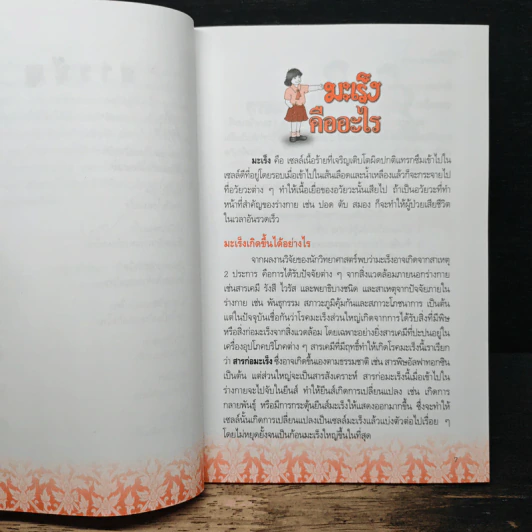 มะเร็ง
คืออะไร
มะเร็ง คือ เซลล์เนื้อร้ายที่เจริญเติบโตผิดปกติแทรกซึมเข้าไปใน
เซลล์ดีที่อยู่โดยรอบเมื่อเข้าไปในเส้นเลือดและน้ำเหลืองแล้วก็จะกระจายไป
ที่อวัยวะต่าง ๆ ทำให้เนื้อเยื่อของอวัยวะนั้นเสียไป ถ้าเป็นอวัยวะที่ทำ
หน้าที่สำคัญของร่างกาย เช่น ปอด ตับ สมอง ก็จะทำให้ผู้ป่วยเสียชีวิต
ในเวลาอันรวดเร็ว
มะเร็งเกิดขึ้นได้อย่างไร
จากผลงานวิจัยของนักวิทยาศาสตร์พบว่ามะเร็งอาจเกิดจากสาเหตุ
2 ประการ คือการได้รับปัจจัยต่าง ๆ จากสิ่งแวดล้อมภายนอกร่างกาย
เช่นสารเคมี รังสี ไวรัส และพยาธิบางชนิด และสาเหตุจากปัจจัยภายใน
ร่างกาย เช่น พันธุกรรม สภาวะภูมิคุ้มกันและสภาวะโภชนาการ เป็นต้น
แต่ในปัจจุบันเชื่อกันว่าโรคมะเร็งส่วนใหญ่เกิดจากการได้รับสิ่งที่มีพิษ
หรือสิ่งก่อมะเร็งจากสิ่งแวดล้อม โดยเฉพาะอย่างยิ่งสารเคมีที่ปะปนอยู่ใน
เครื่องอุปโภคบริโภคต่าง ๆ สารเคมีที่มีฤทธิ์ทำให้เกิดโรคมะเร็งนี้เราเรียก
ว่า สารก่อมะเร็ง ซึ่งอาจเกิดขึ้นเองตามธรรมชาติ เช่น สารพิษอัลฟาทอกซิน
เป็นต้น แต่ส่วนใหญ่จะเป็นสารสังเคราะห์ สารก่อมะเร็งนี้เมื่อเข้าไปใน
ร่างกายจะไปจับในยีนส์ ทำให้ยีนส์เกิดการเปลี่ยนแปลง เช่น เกิดการ
กลายพันธุ์ หรือมีการกระตุ้นยีนส์มะเร็งให้แสดงออกมากขึ้น ซึ่งจะทำให้
เซลล์นั้นเกิดการเปลี่ยนแปลงเป็นเซลล์มะเร็งแล้วแบ่งตัวต่อไปเรื่อย ๆ
โดยไม่หยุดยั้งจนเป็นก้อนมะเร็งใหญ่ขึ้นในที่สุด
7